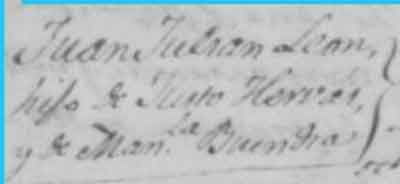 Juan Julian Leon,
hijo de Justo Hervas,
y de Man.la Buendia